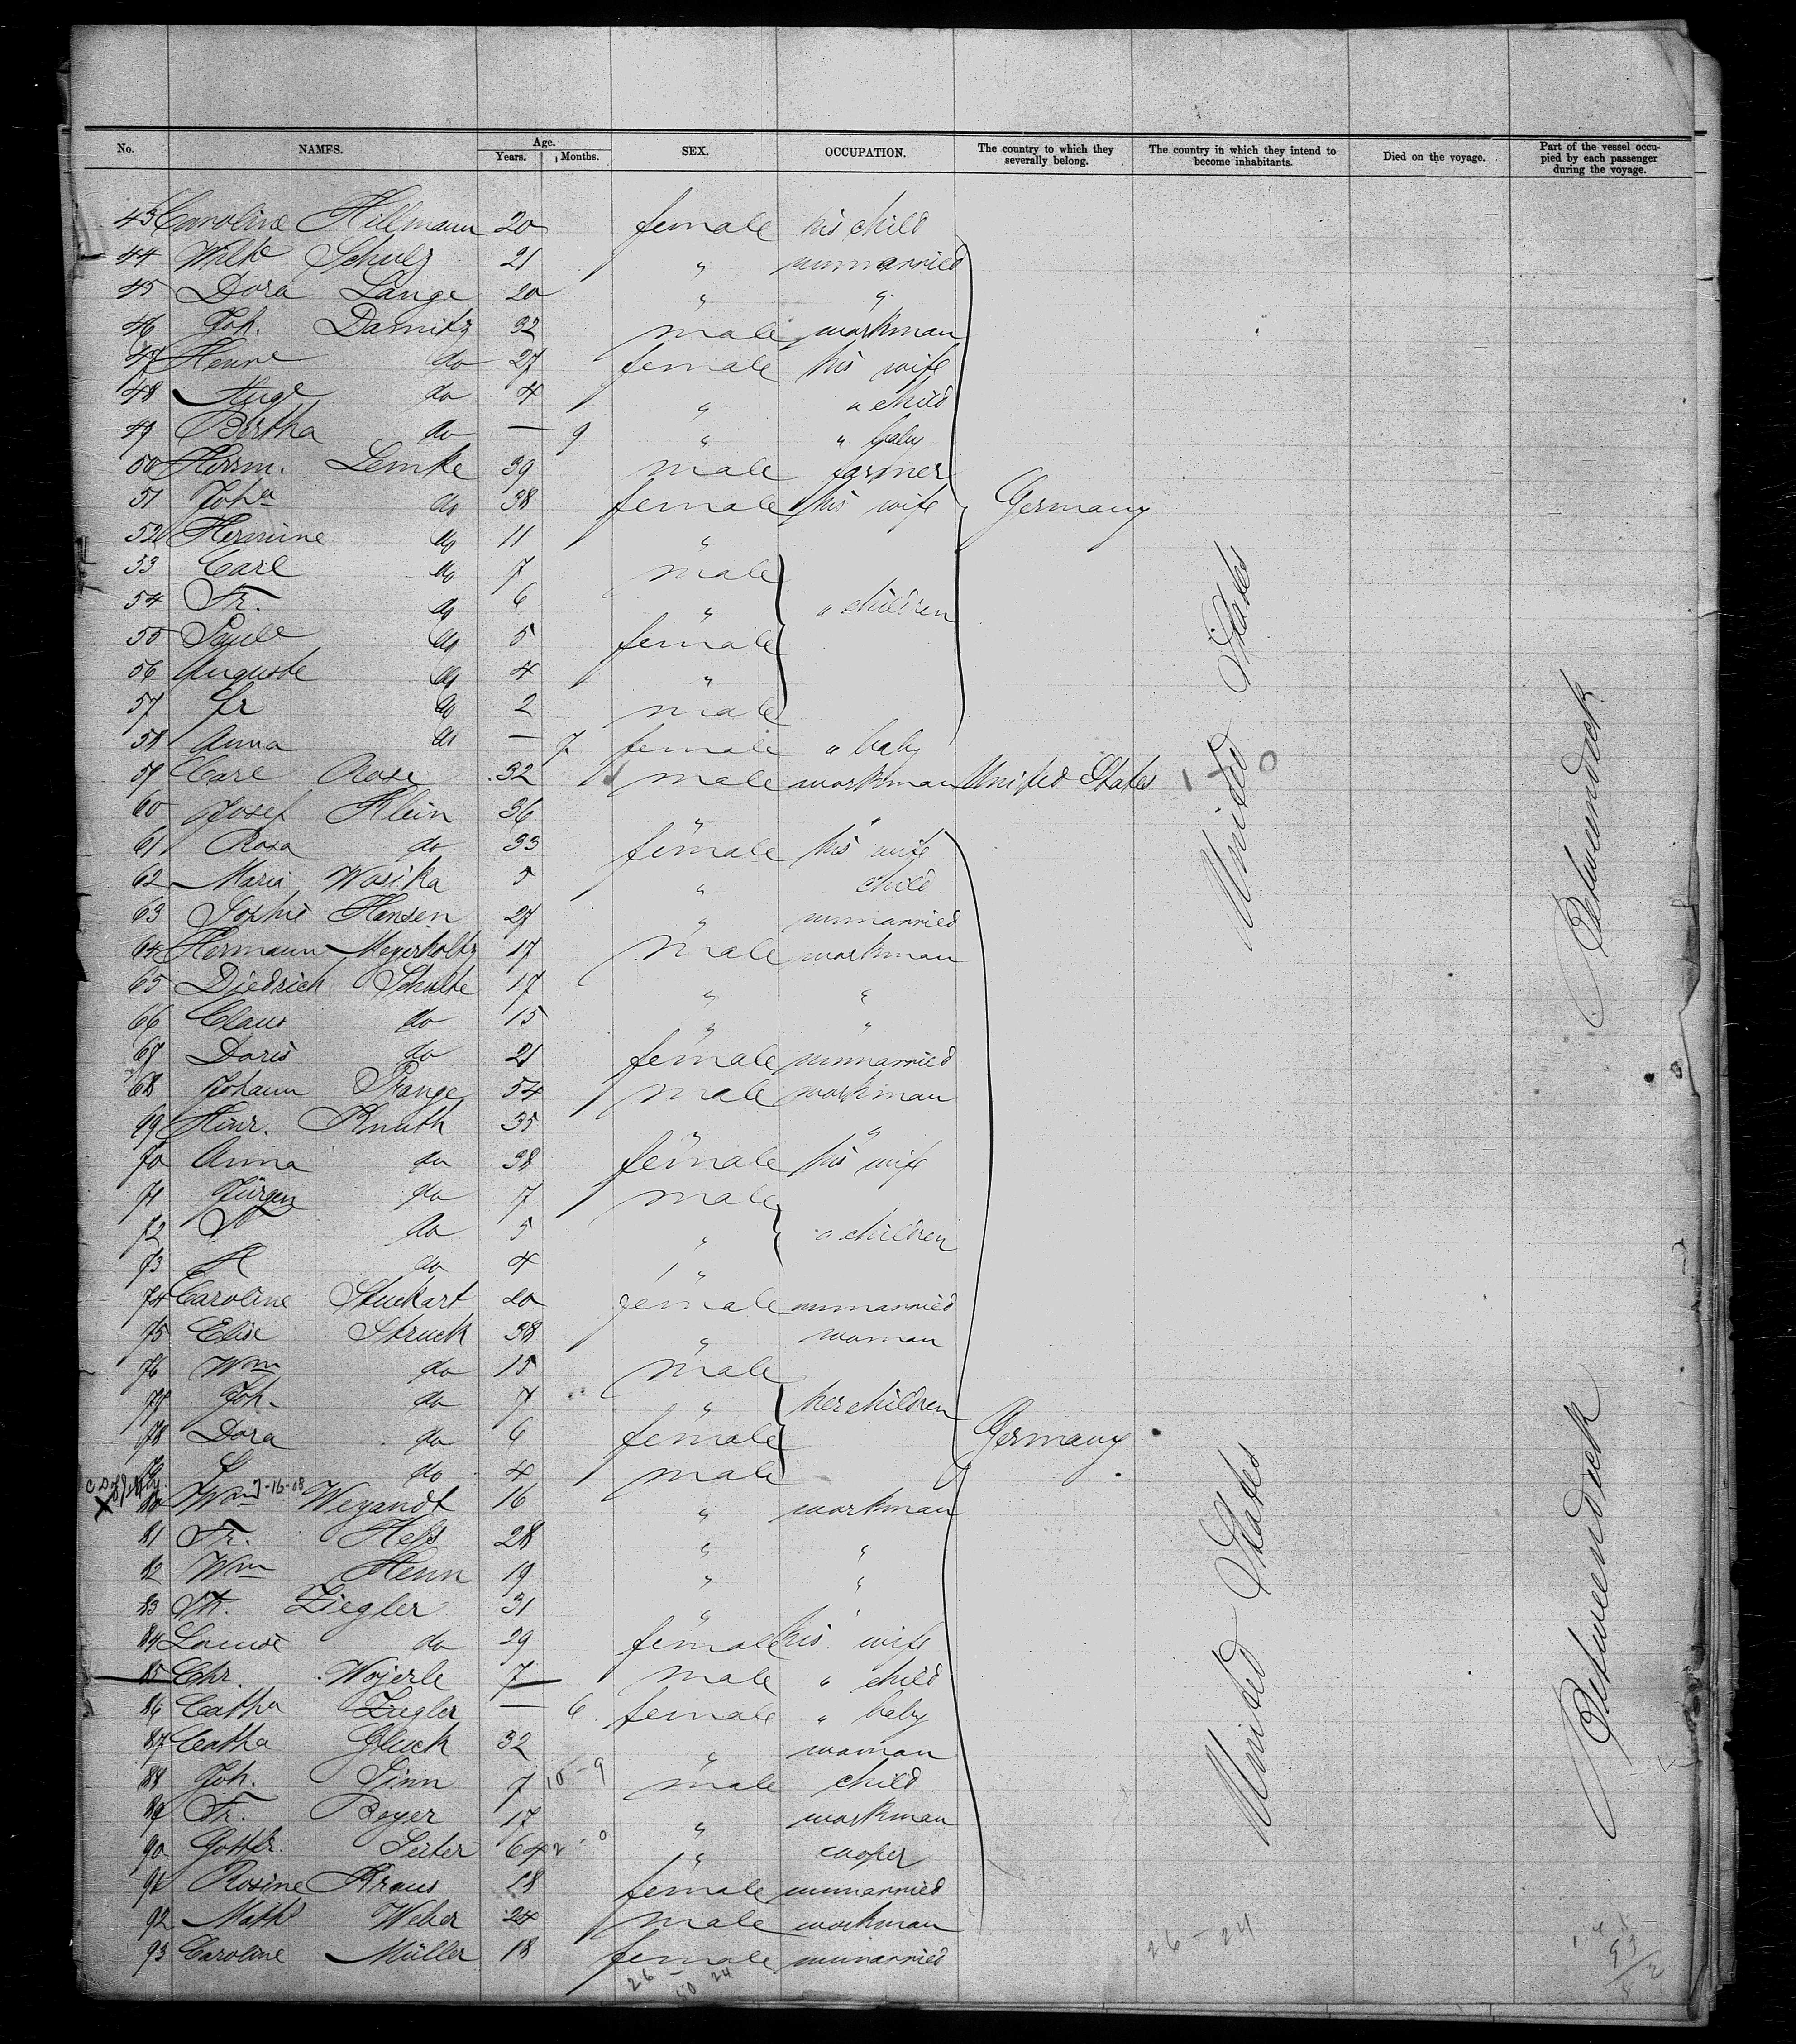 No. NAMES. Age. Years. Months. SEX. OCCUPATION. The country to which they severally belong. The country in which they intend to become inhabitants. Died on the voyage. Part of the vessel occupied by each passenger during the voyage.
43 Caroline Hillmann 20 female his child
44 Wilh Schulz 21 " unmarried
45 Dora Lange 20 " "
46 Joh. Damitz 32 male workman
47 Henre do 27 female his wife
48 do 4 " " child
49 Bertha do — 9 " " baby
50 Herrm. Lemke 39 male farmer
51 Joha do 38 female his wife Germany
52 Hermine do 11 "
53 Carl do 7 male
54 Fr. do 6 " " children
55 Paule do 5 female
56 Auguste do 4 "
57 Fr do 2 male
58 Anna do — 7 female " baby
59 Carl Rose 32 male workman United States
60 Josef Klein 36 " "
61 Rosa do 33 female his wife
62 Maria Wosika 5 " child
63 Sophie Hansen 27 " unmarried
64 Hermann Meyerholtz 17 male workman
65 Diedrich Schulte 17 " "
66 Claus do 15 " "
67 Doris do 21 female unmarried
68 Johann Prange 54 male workman
69 Hinr. Knuth 35 " "
70 Anna do 38 female his wife
71 Jürgen do 7 male
72 do 5 " " children
73 do 4 "
74 Caroline Stuckart 20 female unmarried
75 Elise Struck 38 " woman
76 Wm do 15 male
77 Joh. do 7 " her children
78 Dora do 6 female Germany
79 do 4 male
7-16-08
X 80 Wm Weyandt 16 " workman
81 Fr. Hess 28 " "
82 Wm Henn 19 " "
83 Ziegler 31 " "
84 Louise do 29 female his wife
85 Chr. Wojerle 7 male " child
86 Catha Ziegler — 6 female " baby
87 Catha Gluck 32 " woman
88 Joh. Sinn 7 male child
10-9
89 Fr. Boyer 17 " workman
90 Gottfr. Seiter 64 " cooper
91 Rosine Kraus 18 female unmarried
92 Math Weber 24 male workman
93 Caroline Müller 18 female unmarried
United States
Betweendeck
United States
Betweendeck
26-24
26 - 24
50